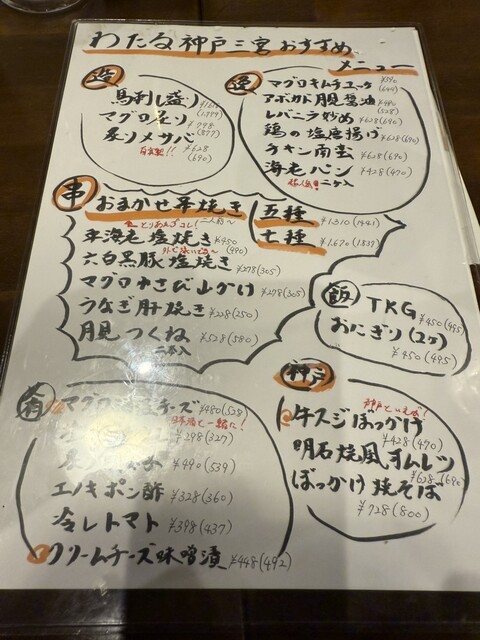 わたる神戸三宮おすすめ
メニュー
造
馬刺し盛り
マグロ造り ¥798(877)
炙りメサバ ¥628(690)
自家製!!
逸
マグロキムチユッケ ¥590(649)
アボカド胆醤油 ¥480(528)
レバニラ炒め ¥628(690)
鶏の塩唐揚げ ¥628(690)
チキン南蛮 ¥628(690)
海老パン ¥428(470)
超人気 二ヶ入
串
おまかせ串焼き 二人前〜
とりあえずコレ!
五種 ¥1.310(1441)
七種 ¥1.670(1837)
串海老塩焼き ¥450(490)
六白黒豚塩焼き ¥278(305)
マグロわさび山かけ ¥278(305)
うなぎ肝焼き ¥228(250)
月見つくね ¥528(580)
二本入
飯
TKG ¥450(495)
おにぎり(2ヶ) ¥450(495)
神戸
神戸といえば!
牛スジぼっかけ ¥428(470)
明石焼風オムレツ ¥628(690)
ぼっかけ焼そば ¥728(800)
肴
マグロ チーズ ¥480(528)
日本酒と一緒に!
¥298(327)
¥490(539)
エノキポン酢 ¥328(360)
冷しトマト ¥398(437)
クリームチーズ味噌漬 ¥448(492)